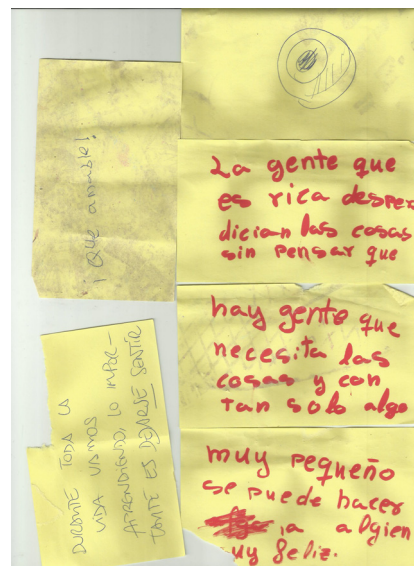 ¡QUE amable!
DURANTE TODA LA
VIDA VIVIMOS
APRENDIENDO, LO IMPOR-
TANTE ES DEJARSE SENTIR
La gente que
es rica desper
dician las cosas
sin pensar que
hay gente que
necesita las
cosas y con
tan solo algo
muy pequeño
se puede hacer
a algien
uy feliz.